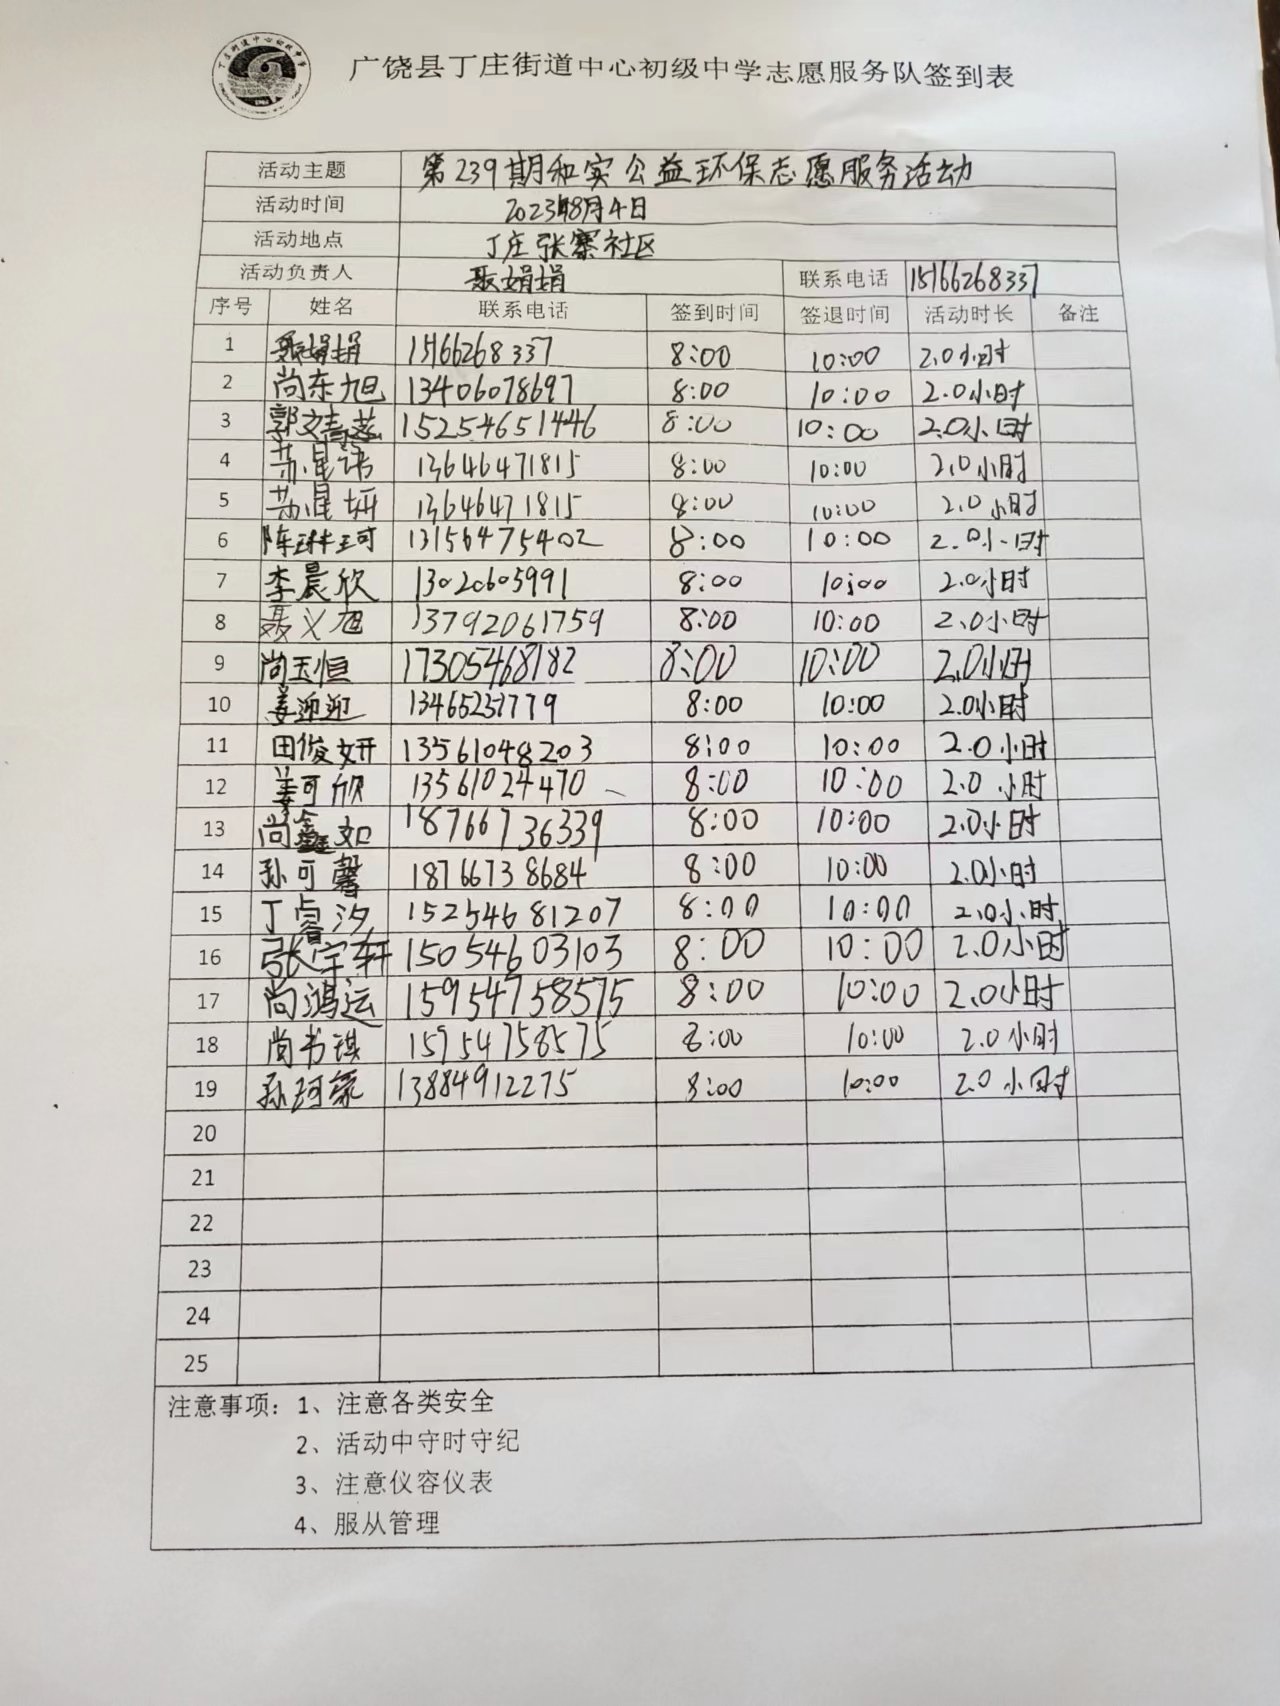 广饶县丁庄街道中心初级中学志愿服务队签到表
活动主题 第239期和实公益环保志愿服务活动
活动时间 2023年8月4日
活动地点 丁庄张寨社区
活动负责人 聂娟娟 联系电话 15166268337
序号 姓名 联系电话 签到时间 签退时间 活动时长 备注
1 聂娟娟 15166268337 8:00 10:00 2.0小时
2 尚东旭 13406078697 8:00 10:00 2.0小时
3 郭文 15254651446 8:00 10:00 2.0小时
4 苏昆 13646471815 8:00 10:00 2.0小时
5 苏昆妍 13646471815 8:00 10:00 2.0小时
6 陈琳珂 13156475402 8:00 10:00 2.0小时
7 李晨欣 13020605991 8:00 10:00 2.0小时
8 聂义旭 13792061759 8:00 10:00 2.0小时
9 尚玉恒 17305468182 8:00 10:00 2.0小时
10 姜迎迎 13465257779 8:00 10:00 2.0小时
11 田俊妍 13561048203 8:00 10:00 2.0小时
12 姜可欣 13561024470 8:00 10:00 2.0小时
13 尚鑫如 18766736339 8:00 10:00 2.0小时
14 孙可馨 18766738684 8:00 10:00 2.0小时
15 丁睿汐 15254681207 8:00 10:00 2.0小时
16 张宇轩 15054603103 8:00 10:00 2.0小时
17 尚鸿运 15954758575 8:00 10:00 2.0小时
18 尚书琪 15954758575 8:00 10:00 2.0小时
19 孙珂豪 13884912275 8:00 10:00 2.0小时
20
21
22
23
24
25
注意事项：1、注意各类安全
2、活动中守时守纪
3、注意仪容仪表
4、服从管理